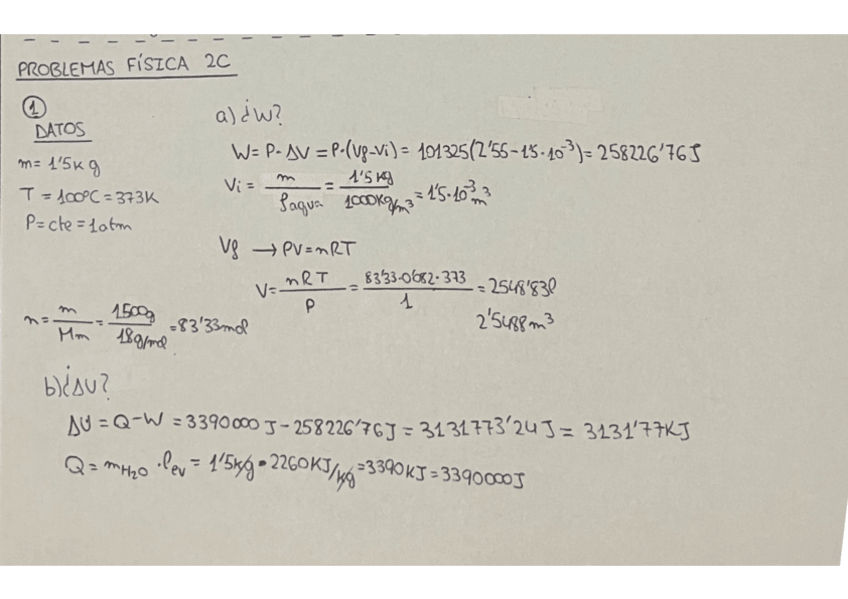 PROBLEMAS FÍSICA 2C
①
DATOS
m= 1'5Kg
T = 100ºC = 373K
P= cte = 1atm
n= m/Mm = 1500g/18g/mol = 83'33mol
a) ¿W?
W= P· ΔV = P·(Vf-Vi) = 101325(2'55-1'5·10⁻³) = 258226'76J
Vi = m/ρagua = 1'5Kg/1000Kg/m³ = 1'5·10⁻³ m³
Vf → PV=nRT
V= nRT/P = 83'33·0'082·373/1 = 2548'83l
2'5488m³
b) ¿ΔU?
ΔU = Q-W = 3390000J - 258226'76J = 3131773'24J = 3131'77KJ
Q = mH₂O · lev = 1'5kg · 2260KJ/kg = 3390KJ = 3390000J